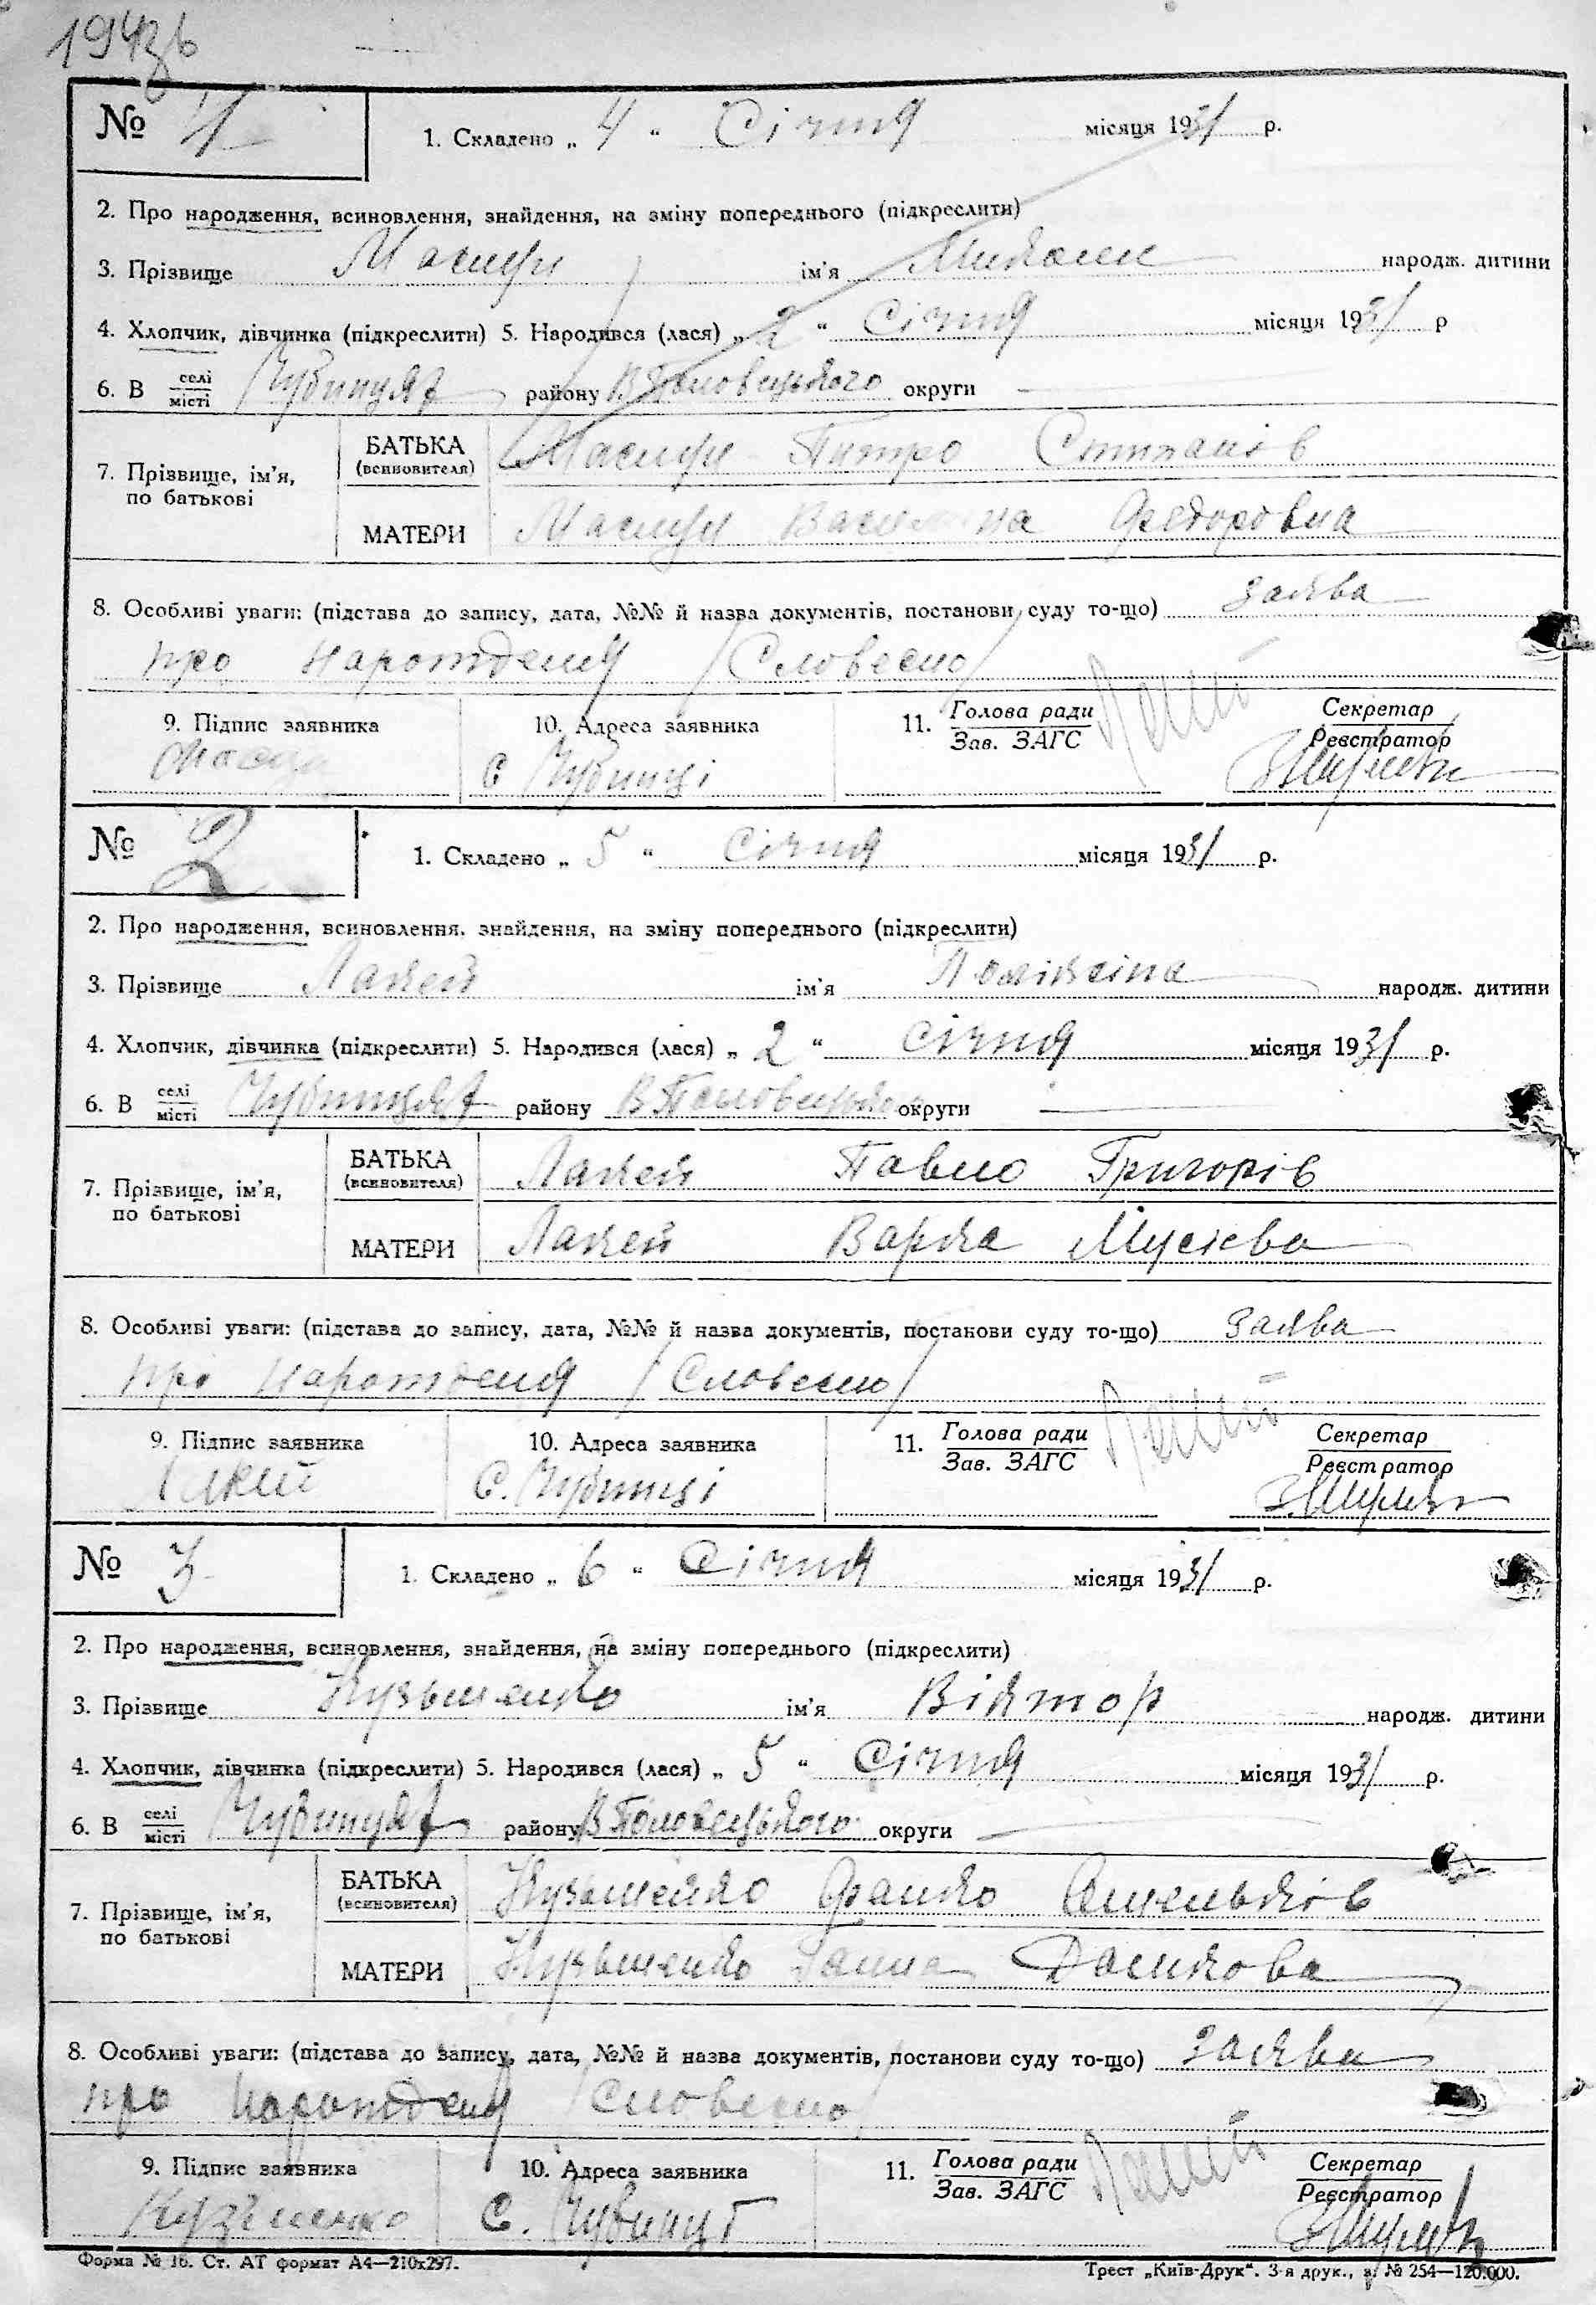 № 1 1. Складено „ 4 “ Січня місяця 1931 р.
2. Про народження, всиновлення, знайдення, на зміну попереднього (підкреслити)
3. Прізвище ім'я народж. дитини
4. Хлопчик, дівчинка (підкреслити) 5. Народився (лася) „ 2 “ Січня місяця 1931 р
6. В селі місті району округи
7. Прізвище, ім'я, по батькові
БАТЬКА (всиновителя) Петро Степанів
МАТЕРИ Федоровна
8. Особливі уваги: (підстава до запису, дата, №№ й назва документів, постанови суду то-що) заява
про нарождения /Словесно/
9. Підпис заявника 10. Адреса заявника 11. Голова ради Зав. ЗАГС Секретар Реєстратор
с Чубинці
№ 2 1. Складено „ 5 “ Січня місяця 1931 р.
2. Про народження, всиновлення, знайдення, на зміну попереднього (підкреслити)
3. Прізвище Лакей ім'я народж. дитини
4. Хлопчик, дівчинка (підкреслити) 5. Народився (лася) „ 2 “ січня місяця 1931 р.
6. В селі місті району округи
7. Прізвище, ім'я, по батькові
БАТЬКА (всиновителя) Лакей Павло Григорів
МАТЕРИ Лакей Варка Мусієва
8. Особливі уваги: (підстава до запису, дата, №№ й назва документів, постанови суду то-що) заява
про нарождения /Словесно/
9. Підпис заявника 10. Адреса заявника 11. Голова ради Зав. ЗАГС Секретар Реєстратор
С. Чубинці
№ 3 1. Складено „ 6 “ Січня місяця 1931 р.
2. Про народження, всиновлення, знайдення, на зміну попереднього (підкреслити)
3. Прізвище Кузьменко ім'я Віктор народж. дитини
4. Хлопчик, дівчинка (підкреслити) 5. Народився (лася) „ 5 “ Січня місяця 1931 р.
6. В селі місті району округи
7. Прізвище, ім'я, по батькові
БАТЬКА (всиновителя) Кузьменко Франко
МАТЕРИ Кузьменко Ганна Данилова
8. Особливі уваги: (підстава до запису, дата, №№ й назва документів, постанови суду то-що) заява
про нарождения /Словесно
9. Підпис заявника 10. Адреса заявника 11. Голова ради Зав. ЗАГС Секретар Реєстратор
Кузьменко С.
Форма № 16. Ст. АТ формат А4—210х297. Трест „Київ-Друк“. 3-я друк., з. № 254—120.000.